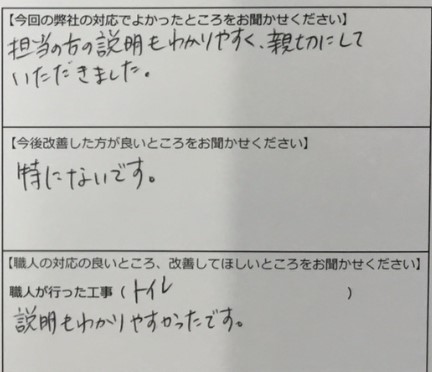 【今回の弊社の対応でよかったところをお聞かせください】
担当の方の説明もわかりやすく、親切にして
いただきました。
【今後改善した方が良いところをお聞かせください】
特にないです。
【職人の対応の良いところ、改善してほしいところをお聞かせください】
職人が行った工事（トイレ）
説明もわかりやすかったです。